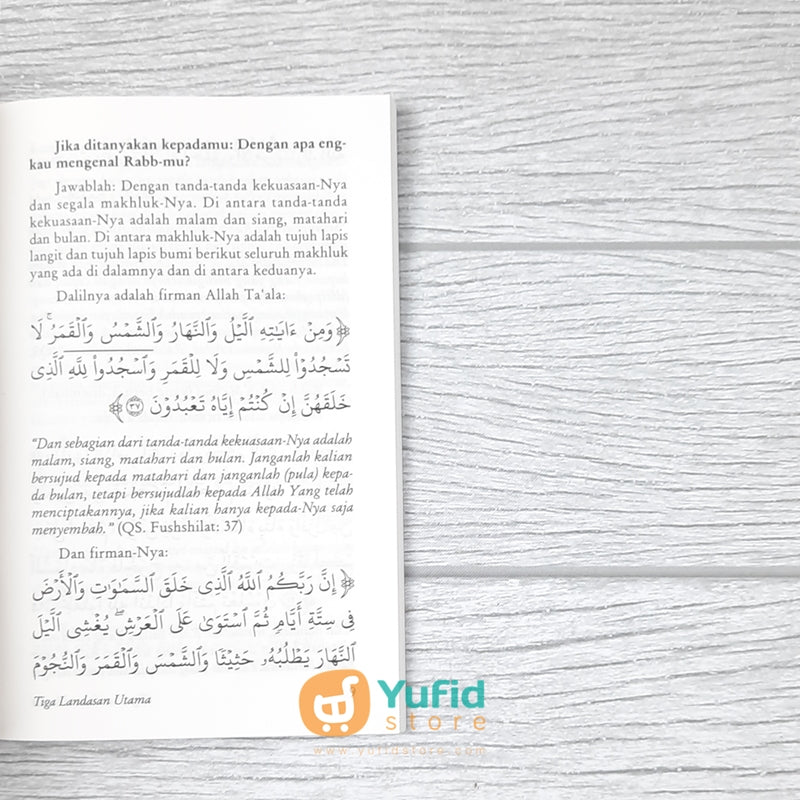 Jika ditanyakan kepadamu: Dengan apa eng-
kau mengenal Rabb-mu?
Jawablah: Dengan tanda-tanda kekuasaan-Nya
dan segala makhluk-Nya. Di antara tanda-tanda
kekuasaan-Nya adalah malam dan siang, matahari
dan bulan. Di antara makhluk-Nya adalah tujuh lapis
langit dan tujuh lapis bumi berikut seluruh makhluk
yang ada di dalamnya dan di antara keduanya.
Dalilnya adalah firman Allah Ta'ala:
﴿وَمِنْ ءَايَٰتِهِ ٱلَّيْلُ وَٱلنَّهَارُ وَٱلشَّمْسُ وَٱلْقَمَرُ ۚ لَا
تَسْجُدُوا۟ لِلشَّمْسِ وَلَا لِلْقَمَرِ وَٱسْجُدُوا۟ لِلَّهِ ٱلَّذِى
خَلَقَهُنَّ إِن كُنتُمْ إِيَّاهُ تَعْبُدُونَ ٣٧﴾
“Dan sebagian dari tanda-tanda kekuasaan-Nya adalah
malam, siang, matahari dan bulan. Janganlah kalian
bersujud kepada matahari dan janganlah (pula) kepa-
da bulan, tetapi bersujudlah kepada Allah Yang telah
menciptakannya, jika kalian hanya kepada-Nya saja
menyembah.” (QS. Fushshilat: 37)
Dan firman-Nya:
﴿إِنَّ رَبَّكُمُ ٱللَّهُ ٱلَّذِى خَلَقَ ٱلسَّمَٰوَٰتِ وَٱلْأَرْضَ
فِى سِتَّةِ أَيَّامٍ ثُمَّ ٱسْتَوَىٰ عَلَى ٱلْعَرْشِ ۖ يُغْشِى ٱلَّيْلَ
ٱلنَّهَارَ يَطْلُبُهُۥ حَثِيثًا وَٱلشَّمْسَ وَٱلْقَمَرَ وَٱلنُّجُومَ
Tiga Landasan Utama
Yufid
store
www.yufidstore.com